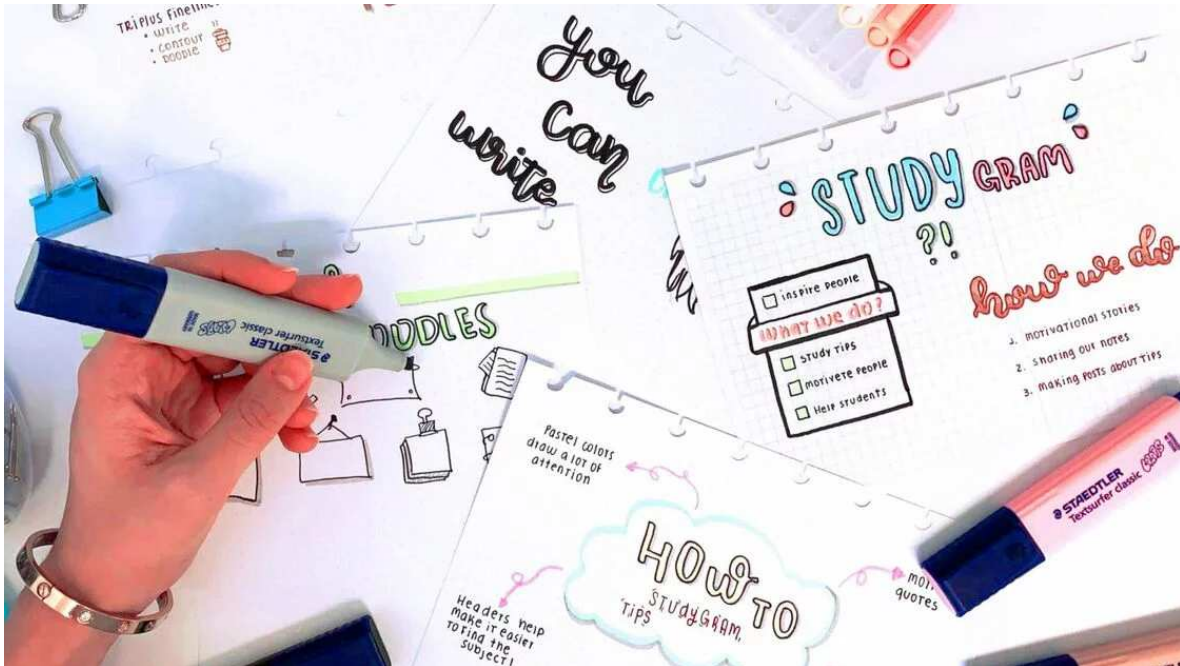 TRIPLUS FINELINER
• WRITE
• CONTOUR
• DOODLE
you
can
write
STUDYGRAM
?!
inspire people
WHAT WE DO?
STUDY TIPS
MOTIVETE PEOPLE
HELP STUDENTS
how we do
1. MOTIVATIONAL STORIES
2. SHARING OUR NOTES
3. MAKING POSTS ABOUT TIPS
DOODLES
STAEDTLER
Textsurfer classic
Pastel colors
draw a lot of
attention
HOW TO
STUDYGRAM
TIPS
quotes
Headers help
make it easier
to find the
subject!
STAEDTLER
Textsurfer classic